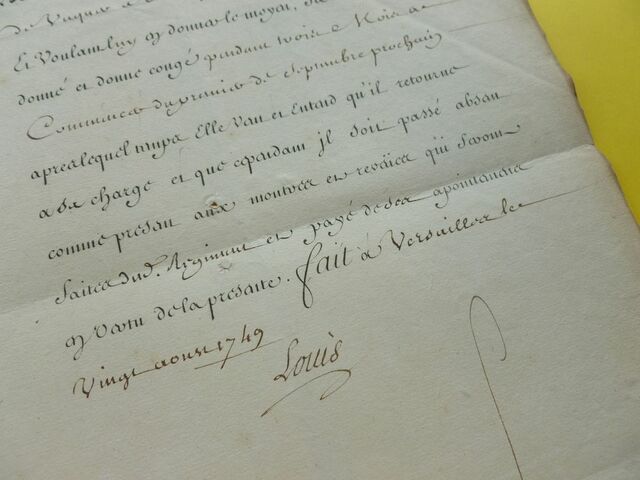 de Vaquer a
Et Voulant luy en donner le moyen, Sa
donné et donne congé pendant trois Mois a
Commencer du premier de Septembre prochain
apres lequel temps Elle Veut et Entend qu'il retourne
a sa charge et que cependant jl soit passé absent
comme present aux montres et reveües qui seront
faites dud. Regiment et payé de ses apointemens
en Vertu de la presente. fait a Versailles le
Vingt aoust 1749
Louis